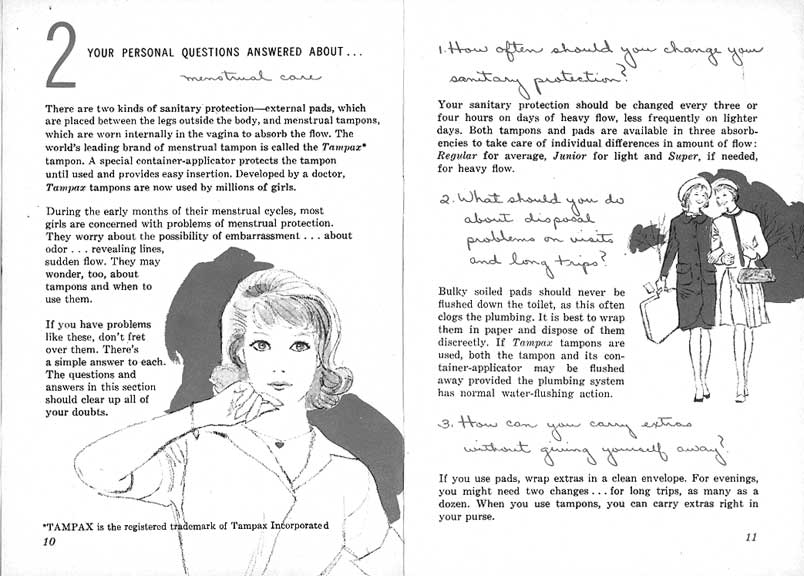 2
YOUR PERSONAL QUESTIONS ANSWERED ABOUT...
menstrual care
There are two kinds of sanitary protection—external pads, which
are placed between the legs outside the body, and menstrual tampons,
which are worn internally in the vagina to absorb the flow. The
world's leading brand of menstrual tampon is called the Tampax*
tampon. A special container-applicator protects the tampon
until used and provides easy insertion. Developed by a doctor,
Tampax tampons are now used by millions of girls.
During the early months of their menstrual cycles, most
girls are concerned with problems of menstrual protection.
They worry about the possibility of embarrassment . . . about
odor . . . revealing lines,
sudden flow. They may
wonder, too, about
tampons and when to
use them.
If you have problems
like these, don't fret
over them. There's
a simple answer to each.
The questions and
answers in this section
should clear up all of
your doubts.
*TAMPAX is the registered trademark of Tampax Incorporated
10
1. How often should you change your
sanitary protection?
Your sanitary protection should be changed every three or
four hours on days of heavy flow, less frequently on lighter
days. Both tampons and pads are available in three absorb-
encies to take care of individual differences in amount of flow:
Regular for average, Junior for light and Super, if needed,
for heavy flow.
2. What should you do
about disposal
problems on visits
and long trips?
Bulky soiled pads should never be
flushed down the toilet, as this often
clogs the plumbing. It is best to wrap
them in paper and dispose of them
discreetly. If Tampax tampons are
used, both the tampon and its con-
tainer-applicator may be flushed
away provided the plumbing system
has normal water-flushing action.
3. How can you carry extras
without giving yourself away?
If you use pads, wrap extras in a clean envelope. For evenings,
you might need two changes . . . for long trips, as many as a
dozen. When you use tampons, you can carry extras right in
your purse.
11